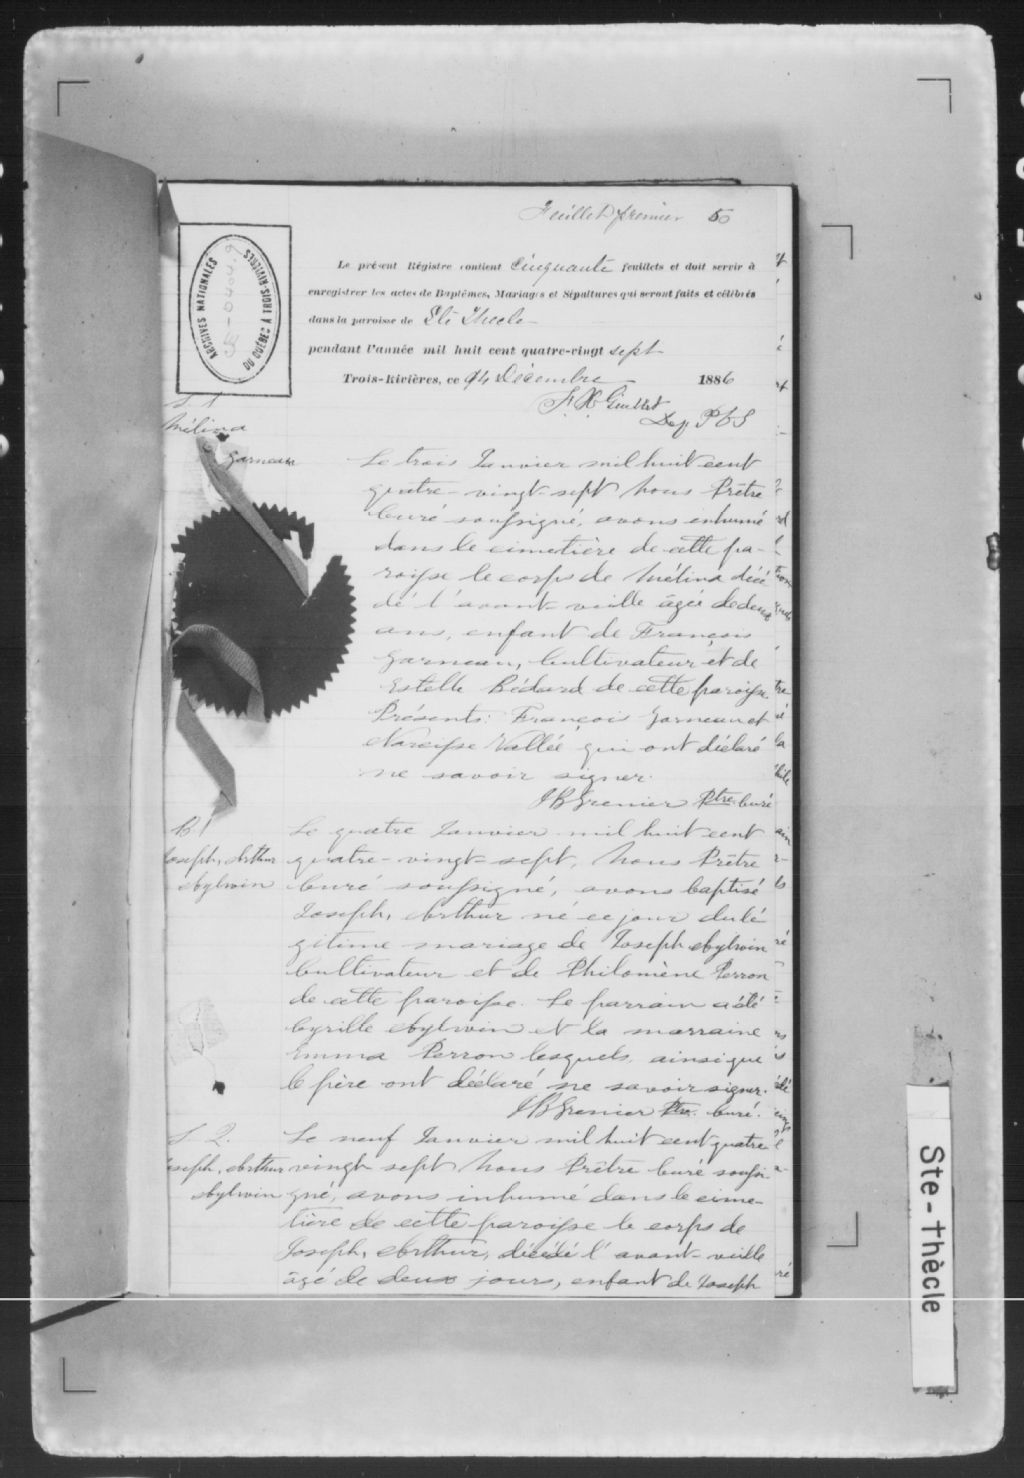 Feuillet premier 50
Le présent Régistre contient Cinquante feuillets et doit servir à
enregistrer les actes de Baptêmes, Mariages et Sépultures qui seront faits et célébrés
dans la paroisse de Ste Thecle
pendant l'année mil huit cent quatre-vingt sept
Trois-Rivières, ce 14 Décembre 1886
F. X. Guillet
Dep P C S
ARCHIVES NATIONALES
DU QUÉBEC À TROIS-RIVIÈRES
S. 1
Mélina
Garneau
Le trois Janvier mil huit cent
quatre-vingt-sept Nous Prêtre
Curé soussigné, avons inhumé
dans le cimetière de cette pa-
roisse le corps de Mélina décé
dé l'avant-veille âgée de deux
ans, enfant de François
Garneau, Cultivateur et de
Estelle Bédard de cette paroisse
Présents: François Garneau et
Narcisse Vallée qui ont déclaré
ne savoir signer.
JB Grenier Ptre Curé
B 1
Joseph, Arthur
Aylwin
Le quatre Janvier mil huit cent
quatre-vingt-sept, Nous Prêtre
Curé soussigné, avons baptisé
Joseph, Arthur né ce jour du lé
gitime mariage de Joseph Aylwin
Cultivateur et de Philomène Perron
de cette paroisse. Le parrain a été
Cyrille Aylwin et la marraine
Emma Perron lesquels, ainsi que
le père ont déclaré ne savoir signer.
JB Grenier Ptre. Curé.
S 2.
Joseph, Arthur
Aylwin
Le neuf Janvier mil huit cent quatre
vingt sept Nous Prêtre Curé soussi
gné, avons inhumé dans le cime-
tière de cette paroisse le corps de
Joseph, Arthur, décédé l'avant-veille
âgé de deux jours, enfant de Joseph
Ste-Thècle